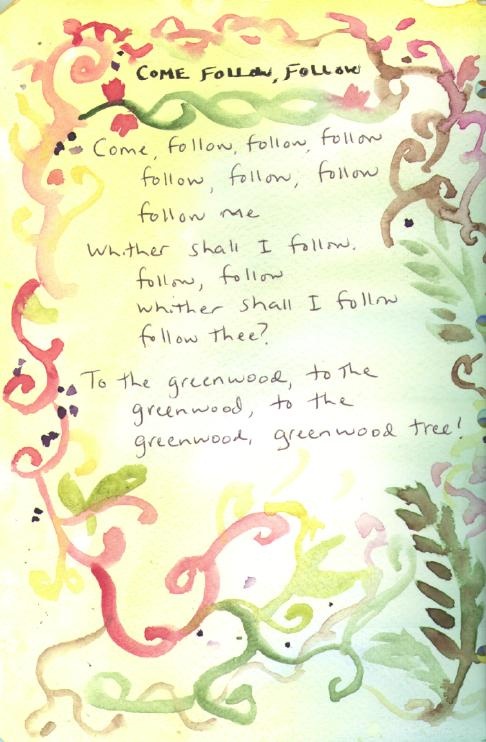 COME FOLLOW, FOLLOW
Come, follow, follow, follow
follow, follow, follow
follow me
Whither shall I follow.
follow, follow
whither shall I follow
follow thee?
To the greenwood, to the
greenwood, to the
greenwood, greenwood tree!